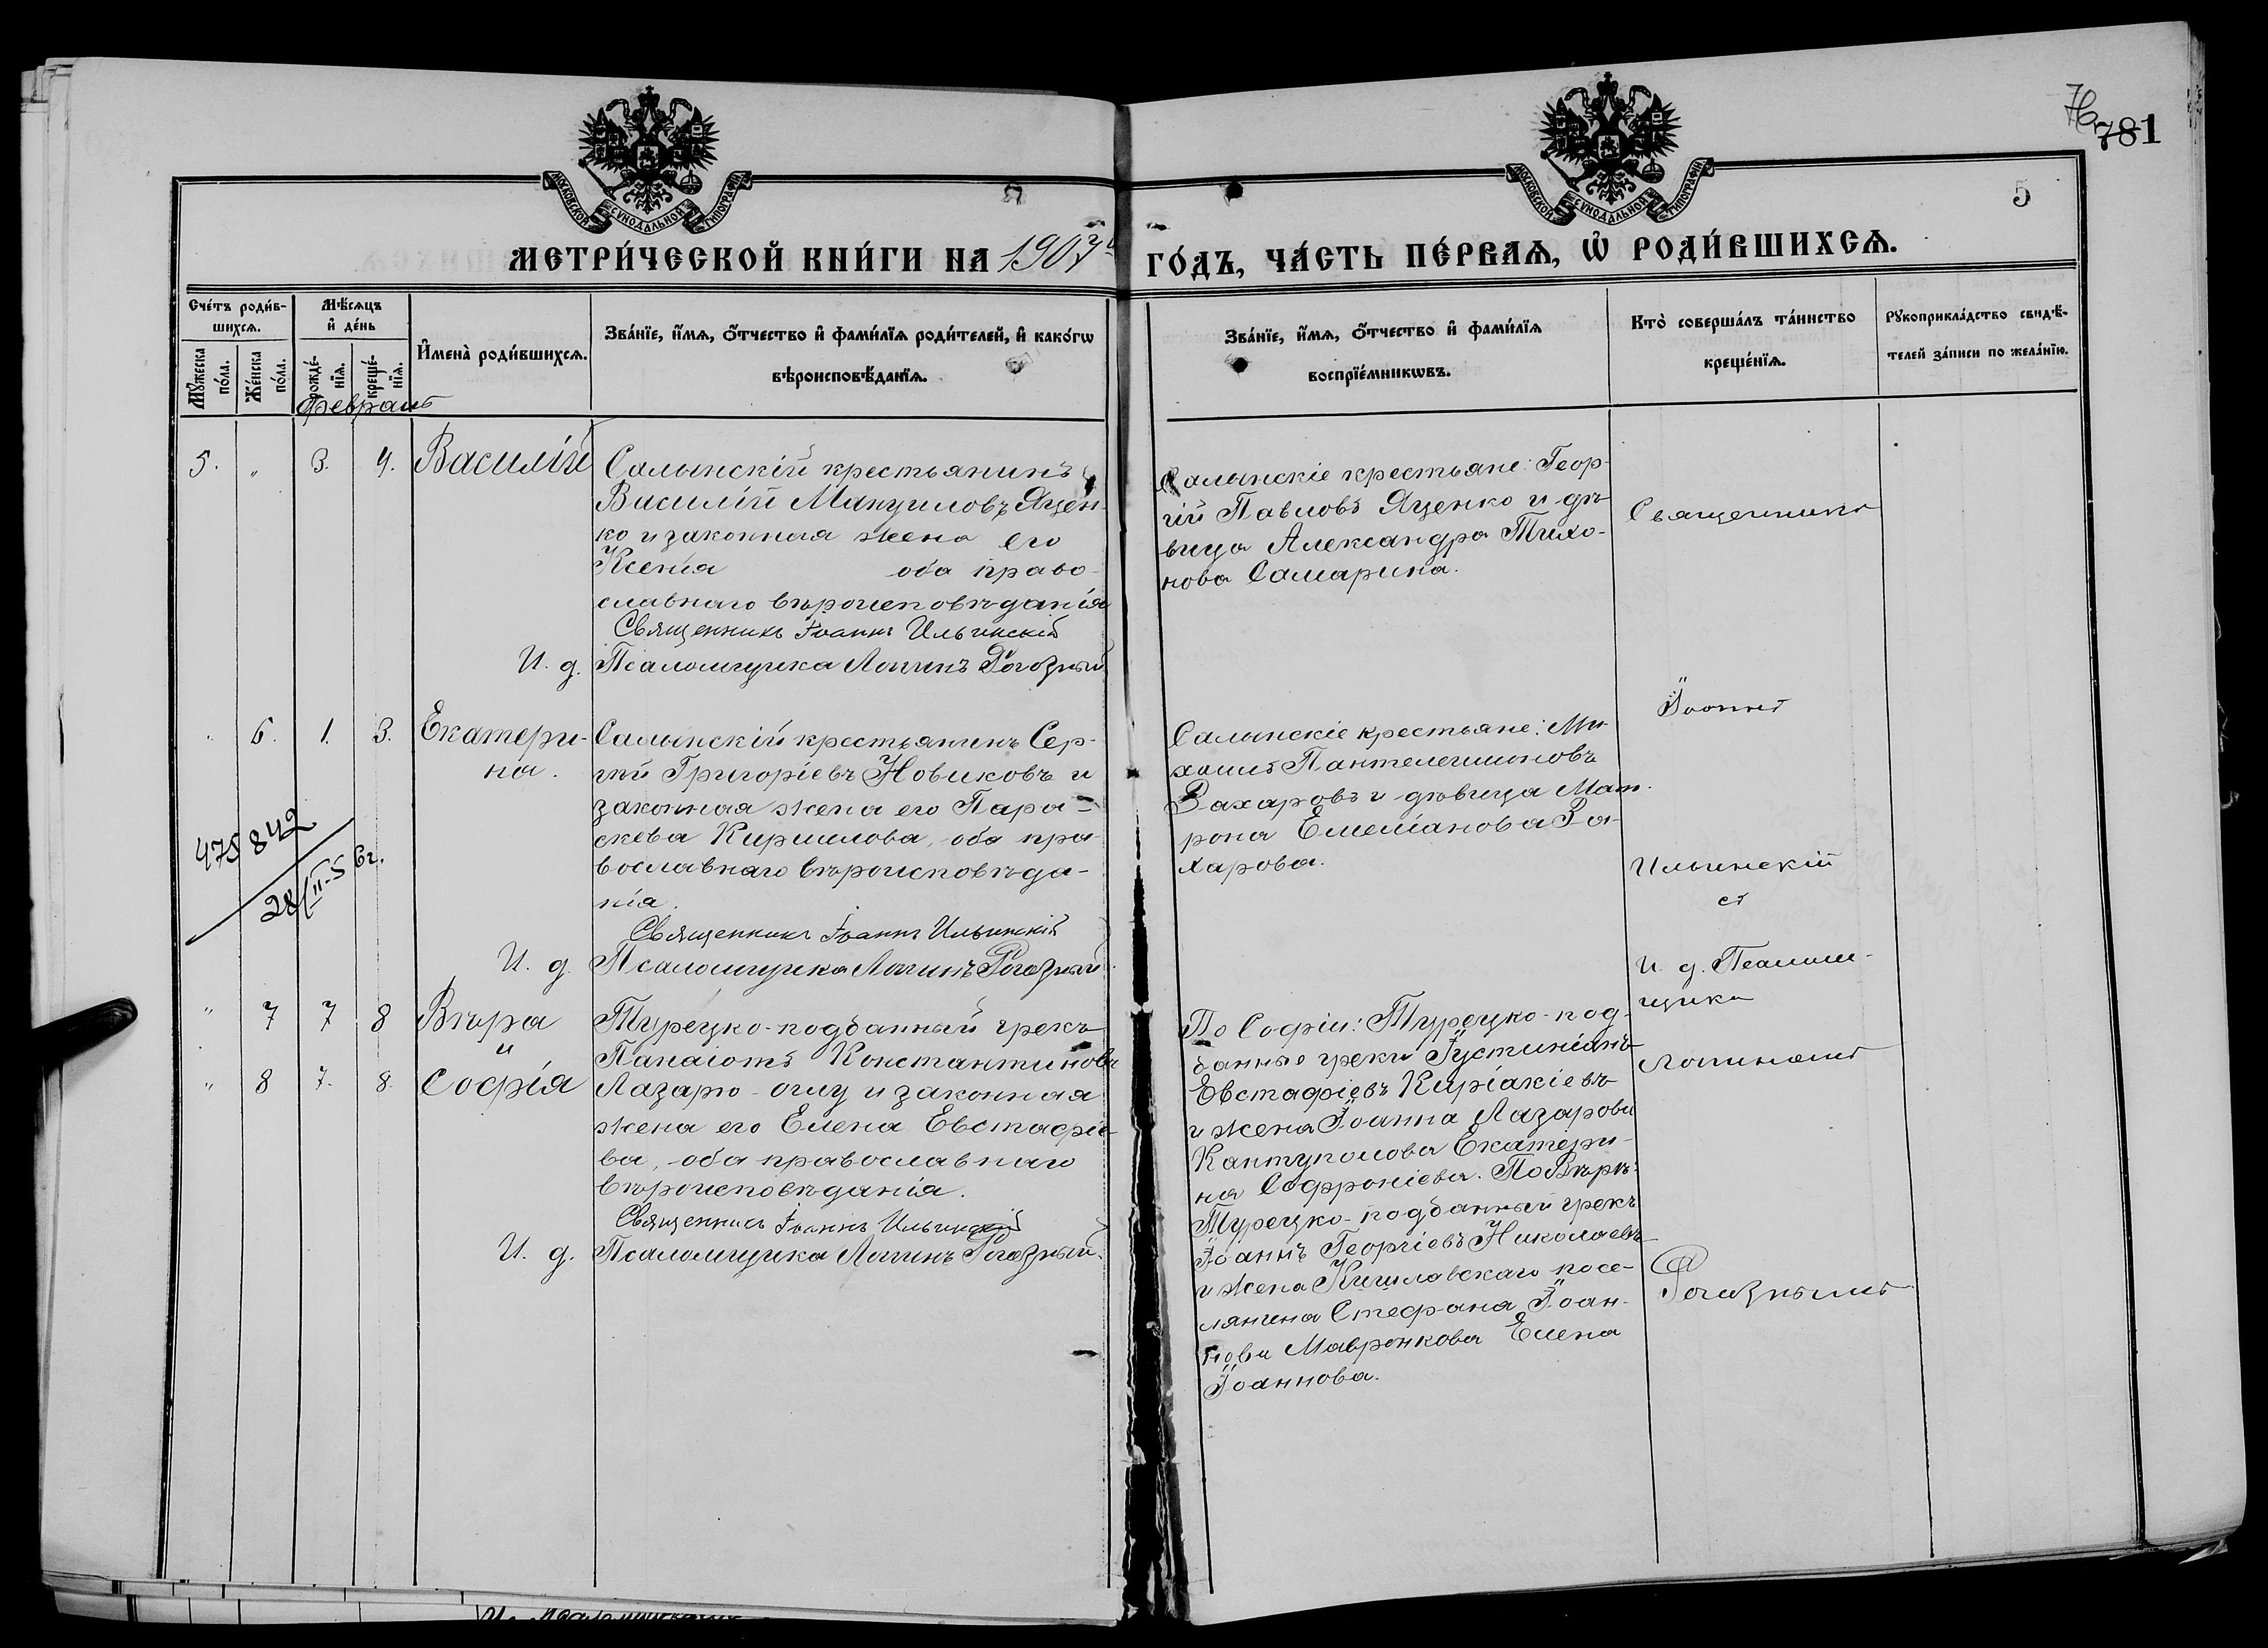 781
5
МОСКОВСКОЙ СѴНОДАЛЬНОЙ ТИПОГРАФІИ
МОСКОВСКОЙ СѴНОДАЛЬНОЙ ТИПОГРАФІИ
МЕТРИ́ЧЕСКОЙ КНИ́ГИ НА 1907й ГО́ДЪ, ЧА́СТЬ ПЕ́РВАѦ, Ѽ РОДИ́ВШИХСѦ.
Сче́тъ роди́в-
шихсѧ.
Мꙋ́жеска
по́ла.
Же́нска
по́ла.
Мѣ́сѧцъ
и҆ де́нь
рожде́-
нїѧ.
креще́-
нїѧ.
И҆мена̀ роди́вшихсѧ.
Зва́нїе, и҆́мѧ, ѻ҆́тчество и҆ фами́лїѧ роди́телей, и҆ како́гѡ
вѣроисповѣ́данїѧ.
Зва́нїе, и҆́мѧ, ѻ҆́тчество и҆ фами́лїѧ
воспрїе́мникѡвъ.
Кто̀ соверша́лъ та́инство
креще́нїѧ.
Рꙋкоприкла́дство свидѣ́-
телей за́писи по жела́нїю.
Февраль
5. " 3. 4. Василій
Салынскій крестьянинъ
Василій Мануиловъ Яцен-
ко и законная жена его
Ксенія оба право-
славнаго вѣроисповѣданія
Священникъ Іоаннъ Ильинскій
И. д. Псаломщика Логинъ Рогозный
Салынскіе крестьяне: Геор-
гій Павловъ Яценко и дѣ-
вица Александра Тихо-
нова Самарина.
Священникъ
" 6. 1. 3. Екатери-
на.
Салынскій крестьянинъ Сер-
гѣй Григоріевъ Новиковъ и
законная жена его Пара-
скева Кириллова, оба пра-
вославнаго вѣроисповѣда-
нія.
Священникъ Іоаннъ Ильинскій
И. д. Псаломщика Логинъ Рогозный.
475 842
28/II-5 6г.
Салынскіе крестьяне: Ми-
хаилъ Пантелеимоновъ
Захаровъ и дѣвица Мат-
рона Емеліанова За-
харова.
Іоаннъ
Ильинскій
съ
И. д. Псалом-
щика
Логиномъ
Рогознымъ
" 7 7 8 Вѣра
и
" 8 7. 8. Софія
Турецко-подданный грекъ
Панаіотъ Константиновъ
Лазарю-оглу и законная
жена его Елена Евстафіе-
ва, оба православнаго
вѣроисповѣданія.
Священникъ Іоаннъ Ильинскій
И. д. Псаломщика Логинъ Рогозный.
По Софіи: Турецко-под-
данные греки Іустиніанъ
Евстафіевъ Киріакіевъ
и жена Іоанна Лазарова
Кантуполова Екатери-
на Софроніева. По Вѣрѣ:
Турецко-подданный грекъ
Іоаннъ Георгіевъ Николаевъ
и жена Кишлавскаго посе-
лянина Стефана Іоан-
нова Мавронкова Елена
Іоаннова.